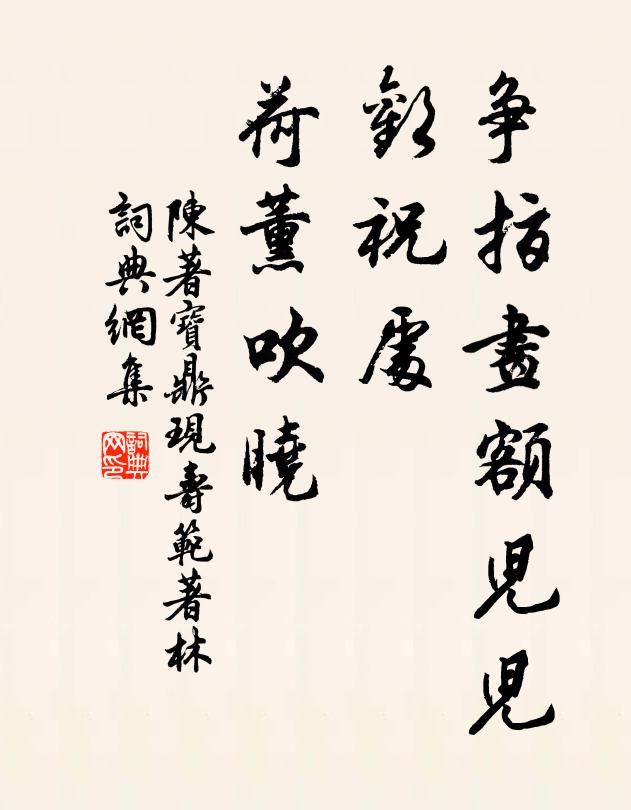 争指畫額兒兒
歡祝處
荷薰吹曉
陳著寶鼎現壽範著林
詞典網集
詞典网印